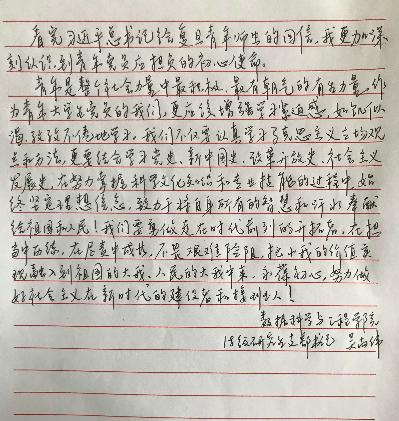 看完习近平总书记给复旦青年师生的回信，我更加深
刻认识到青年党员应担负的初心使命。
青年是整个社会力量中最积极、最有朝气的有生力量，作
为青年大学生党员的我们，更应该增强学习紧迫感，如饥似
渴、孜孜不倦地学习。我们不仅要认真学习马克思主义立场观
点和方法，更要结合学习党史、新中国史、改革开放史、社会主义
发展史，在努力掌握科学文化知识和专业技能的过程中，始
终坚定理想信念，致力于将自身所有的智慧和汗水奉献
给祖国和人民！我们要争做走在时代前列的开拓者，在担
当中历练，在尽责中成长，不畏艰难险阻，把小我的价值实
现融入到祖国的大我、人民的大我中来，永葆初心，努力做
好社会主义在新时代的建设者和接班人！
数据科学与工程学院
18级研究生支部书记